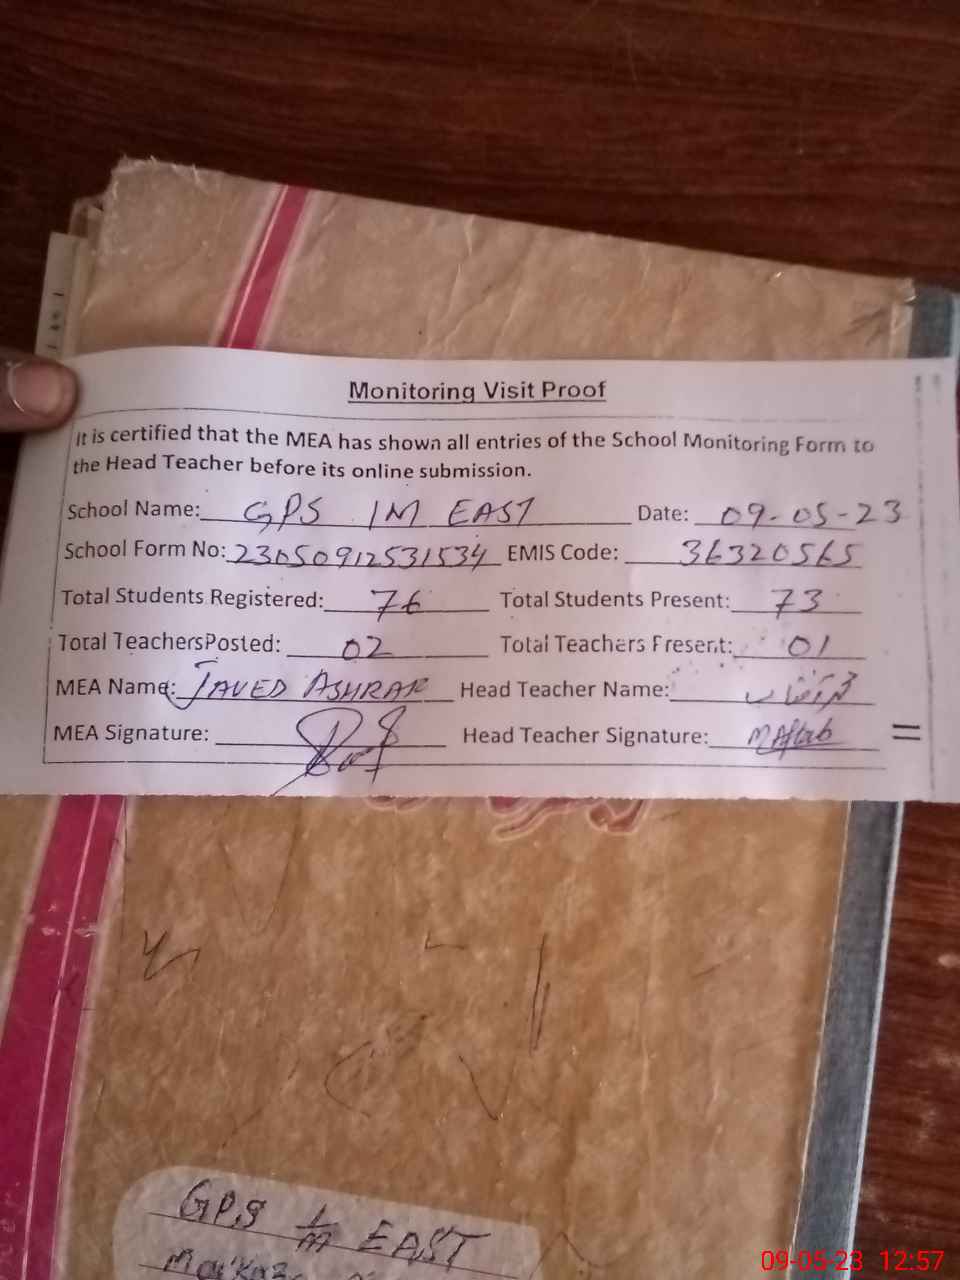 Monitoring Visit Proof
It is certified that the MEA has shown all entries of the School Monitoring Form to
the Head Teacher before its online submission.
School Name: GPS 1M EAST Date: 09-05-23
School Form No: 23050912531534 EMIS Code: 36320565
Total Students Registered: 76 Total Students Present: 73
Total TeachersPosted: 02 Total Teachers Present: 01
MEA Name: JAVED ASHRAF Head Teacher Name: محمد آفتاب
MEA Signature: Head Teacher Signature: MAftab
GPS 1/M EAST
Markaz
09-05-23 12:57